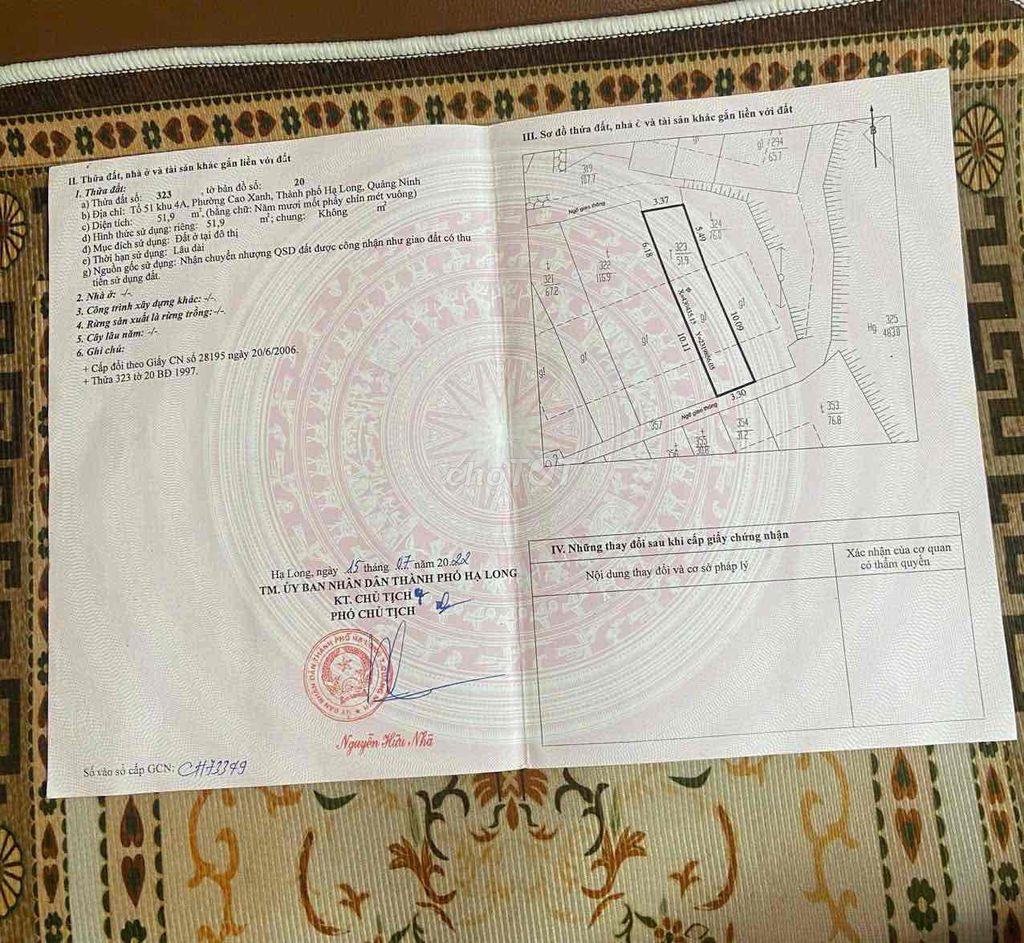 II. Thửa đất, nhà ở và tài sản khác gắn liền với đất
1. Thửa đất:
a) Thửa đất số: 323 , tờ bản đồ số: 20
b) Địa chỉ: Tổ 51 khu 4A, Phường Cao Xanh, Thành phố Hạ Long, Quảng Ninh
c) Diện tích: 51,9 m², (bằng chữ: Năm mươi mốt phẩy chín mét vuông)
d) Hình thức sử dụng: riêng: 51,9 m²; chung: Không m²
đ) Mục đích sử dụng: Đất ở tại đô thị
e) Thời hạn sử dụng: Lâu dài
g) Nguồn gốc sử dụng: Nhận chuyển nhượng QSD đất được công nhận như giao đất có thu
tiền sử dụng đất.
2. Nhà ở: -/-.
3. Công trình xây dựng khác: -/-.
4. Rừng sản xuất là rừng trồng:-/-.
5. Cây lâu năm: -/-
6. Ghi chú:
+ Cấp đổi theo Giấy CN số 28195 ngày 20/6/2006.
+ Thửa 323 tờ 20 BĐ 1997.
Hạ Long, ngày 15 tháng 07 năm 2022
TM. ỦY BAN NHÂN DÂN THÀNH PHỐ HẠ LONG
KT. CHỦ TỊCH
PHÓ CHỦ TỊCH
Nguyễn Hữu Nhã
Số vào sổ cấp GCN: CH73349
III. Sơ đồ thửa đất, nhà ở và tài sản khác gắn liền với đất
B
gl 294
65.7
319
107.7
Ngõ giao thông
3.37
t 324
76.0
6.18
323
51.9
t 322
116.9
t 321
67.2
gl
gl
gl
gl
gl
10.09
10.11
3.30
Hg 325
483.8
Ngõ giao thông
357
t 353
76.8
354
31.2
355
IV. Những thay đổi sau khi cấp giấy chứng nhận
Nội dung thay đổi và cơ sở pháp lý
Xác nhận của cơ quan
có thẩm quyền